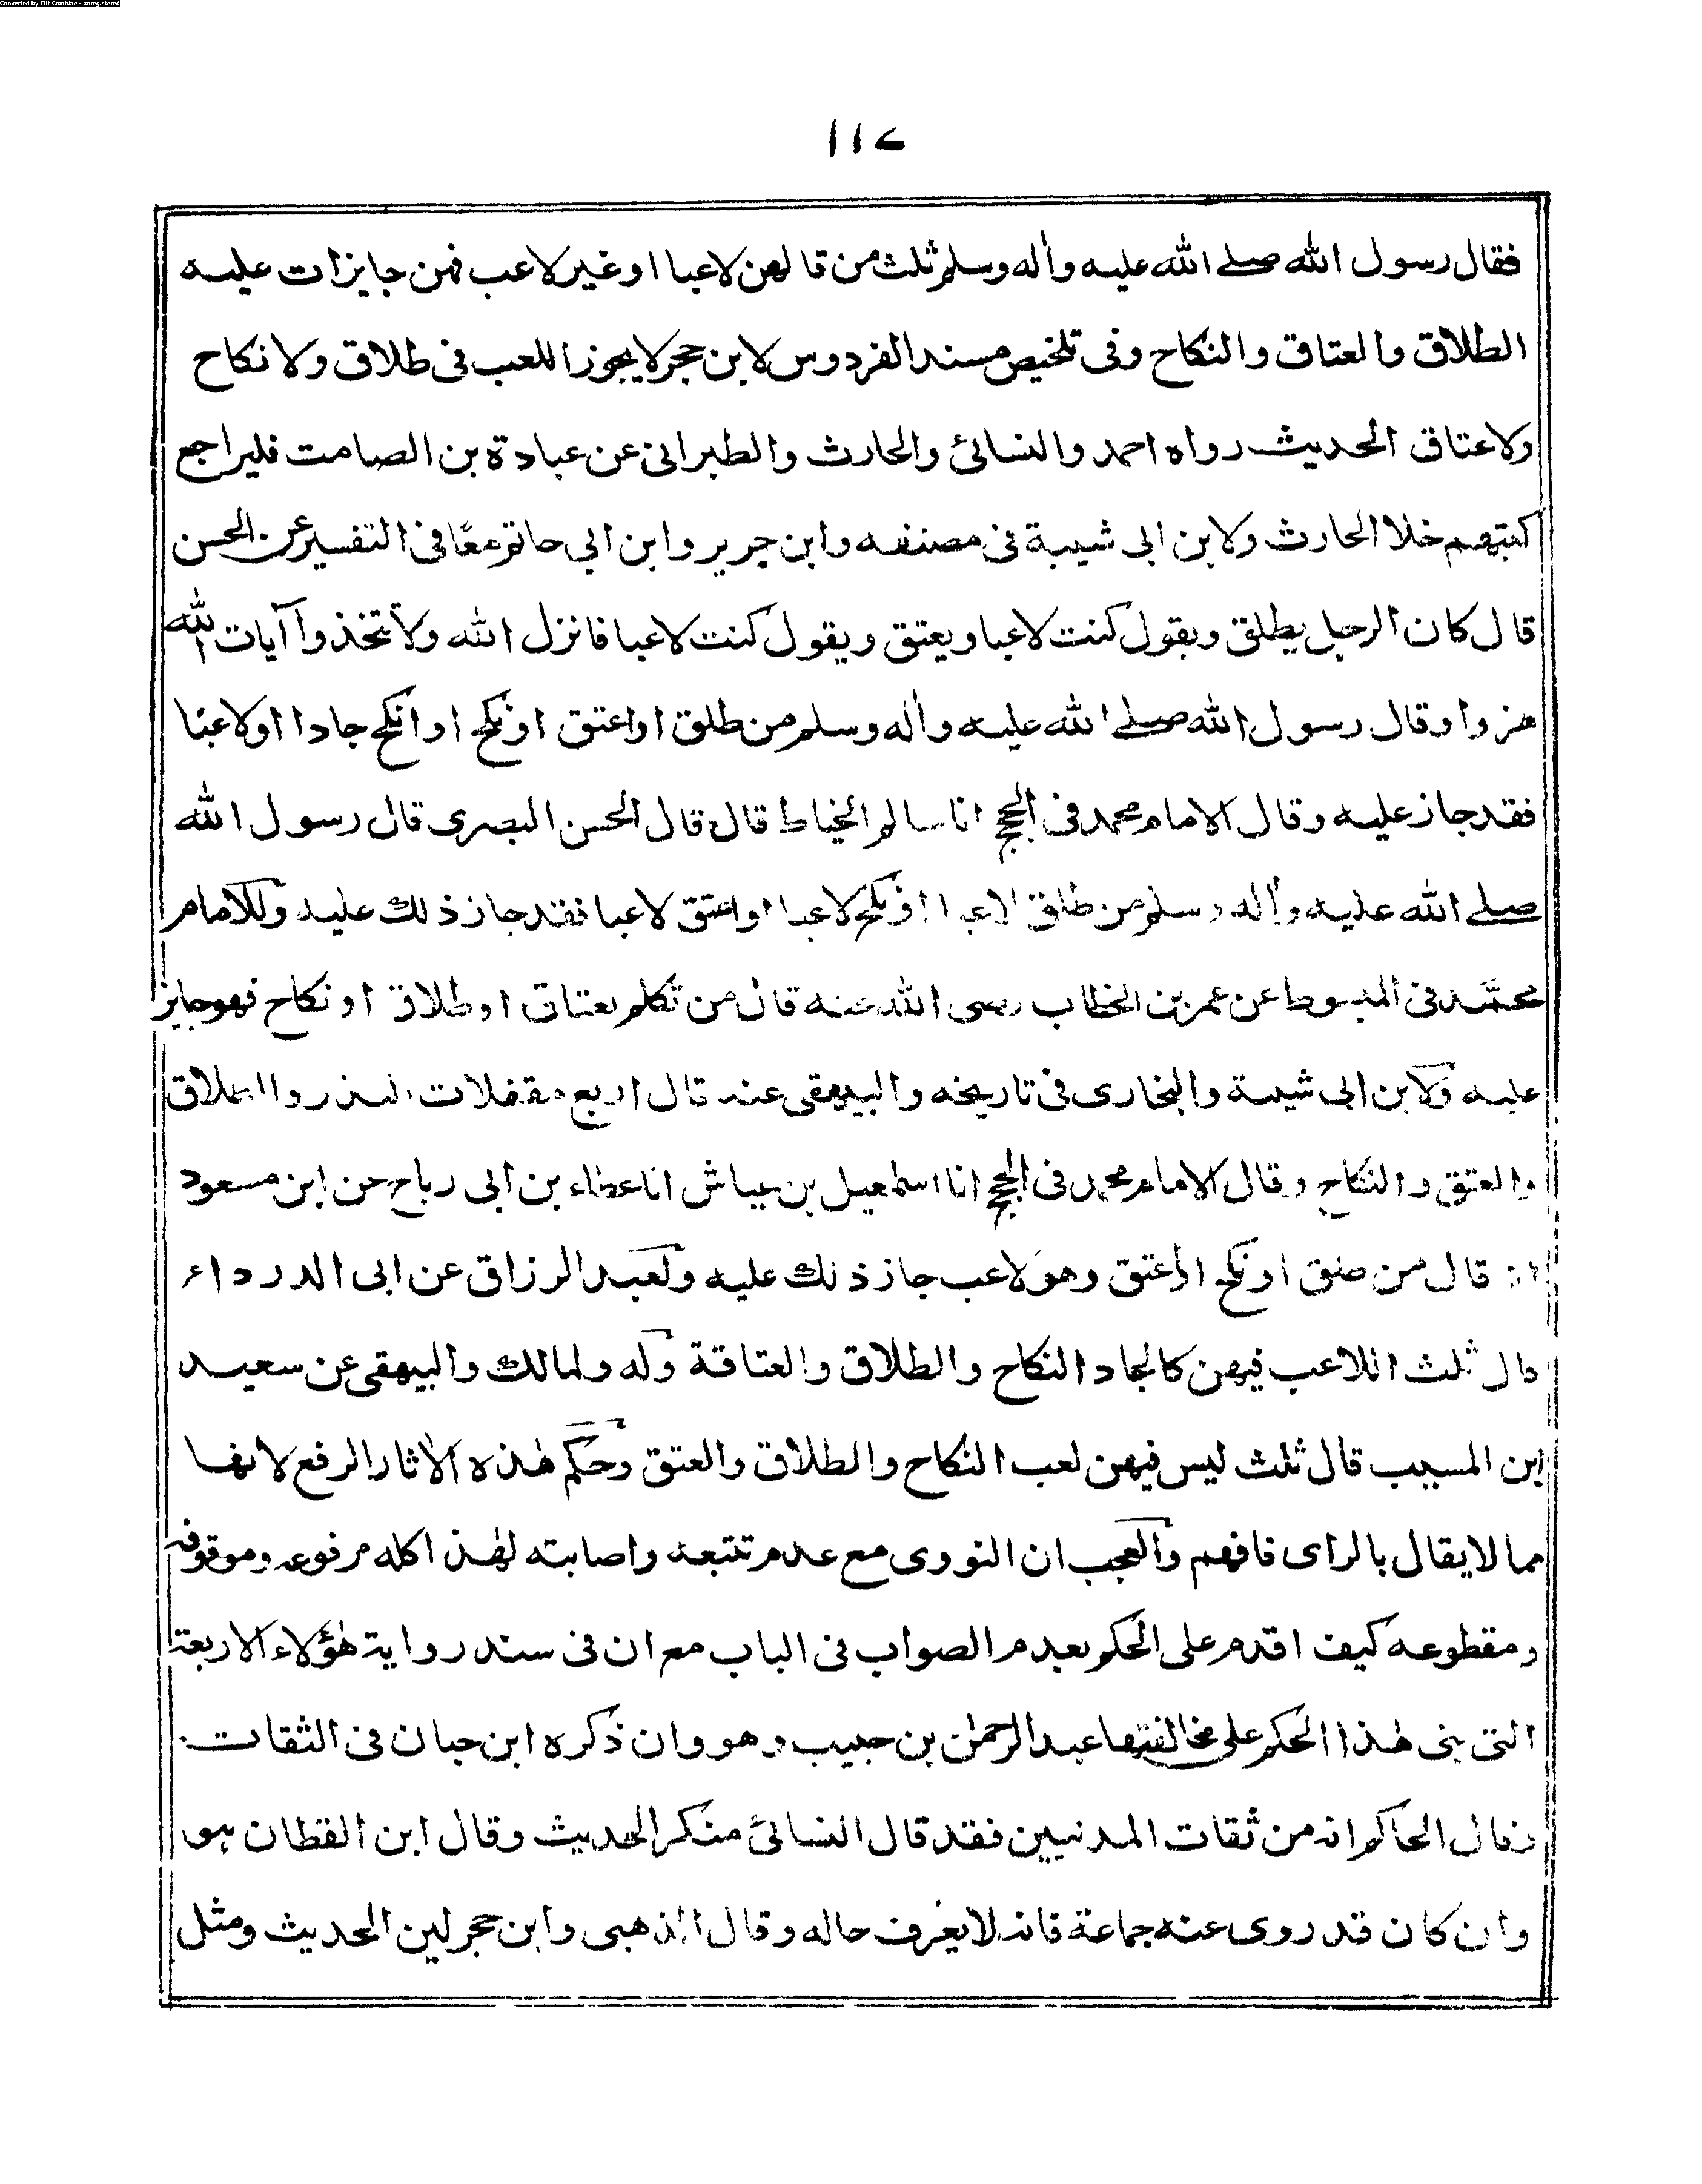 Converted by Tiff Combine - unregistered
١١٧
فقال رسول الله صلے الله عليه وأله وسلم ثلث من قالهن لاعبا او غير لاعب فهن جايزات عليه
الطلاق والعتاق والنكاح وفى تلخيص مسند الفردوس لابن حجر لا يجوز اللعب فى طلاق ولا نكاح
ولا عتاق الحديث رواه احمد والنسائ والحارث والطبرانى عن عبادة بن الصامت فليراجع
كتبهم خلا الحارث ولابن ابى شيبة فى مصنفه وابن جرير وابن ابي حاتم معًا فى التفسير عن الحسن
قال كان الرجل يطلق ويقول كنت لاعبا ويعتق ويقول كنت لاعبا فانزل الله ولا تتخذوا آيات الله
هزوا وقال رسول الله صلے الله عليه وأله وسلم من طلق او اعتق او نكح او انكح جادا او لاعبًا
فقد جاز عليه وقال الامام محمد فى الحجج انا سالم الخياط قال قال الحسن البصرى قال رسول الله
صلے الله عليه وأله وسلم من طلق لاعبا او نكح لاعبا او اعتق لاعبا فقد جاز ذلك عليه وللامام
محمّد فى المبسوط عن عمر بن الخطاب رضى الله عنه قال من تكلم بعتاق او طلاق او نكاح فهو جايز
عليه ولابن ابى شيبة والبخارى فى تاريخه والبيهقى عنه قال اربع مقفلات النذر والطلاق
والعتق والنكاح وقال الامام محمد فى الحجج انا اسمٰعيل بن عياش انا عطاء بن ابى رباح عن ابن مسعود
انه قال من طلق او نكح او اعتق وهو لاعب جاز ذلك عليه ولعبد الرزاق عن ابى الدرداء
قال ثلث اللاعب فيهن كالجاد النكاح والطلاق والعتاقة وله ولمالك والبيهقى عن سعيد
ابن المسيب قال ثلث ليس فيهن لعب النكاح والطلاق والعتق وحكم هٰذه الأثار الرفع لانها
مما لا يقال بالراى فافهم والعجب ان النووى مع عدم تتبعه واصابته لهٰذا كله مرفوعه وموقوفه
ومقطوعه كيف اقدم على الحكم بعدم الصواب فى الباب مع ان فى سند رواية هٰؤلاء الاربعة
التى بنى هٰذا الحكم على مخالفتها عبد الرحمٰن بن حبيب وهو وان ذكره ابن حبان فى الثقات
وقال الحاكم انه من ثقات المدنيين فقد قال النسائ منكر الحديث وقال ابن القطان هو
وان كان قد روى عنه جماعة فانه لا يعرف حاله وقال الذهبى وابن حجر لين الحديث ومثل